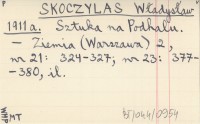 P
SKOCZYLAS Władysław
1911a. Sztuka na Podhalu.
— Ziemia (Warszawa) 2,
nr 21: 324-327; nr 23: 377-
-380, il.
MT